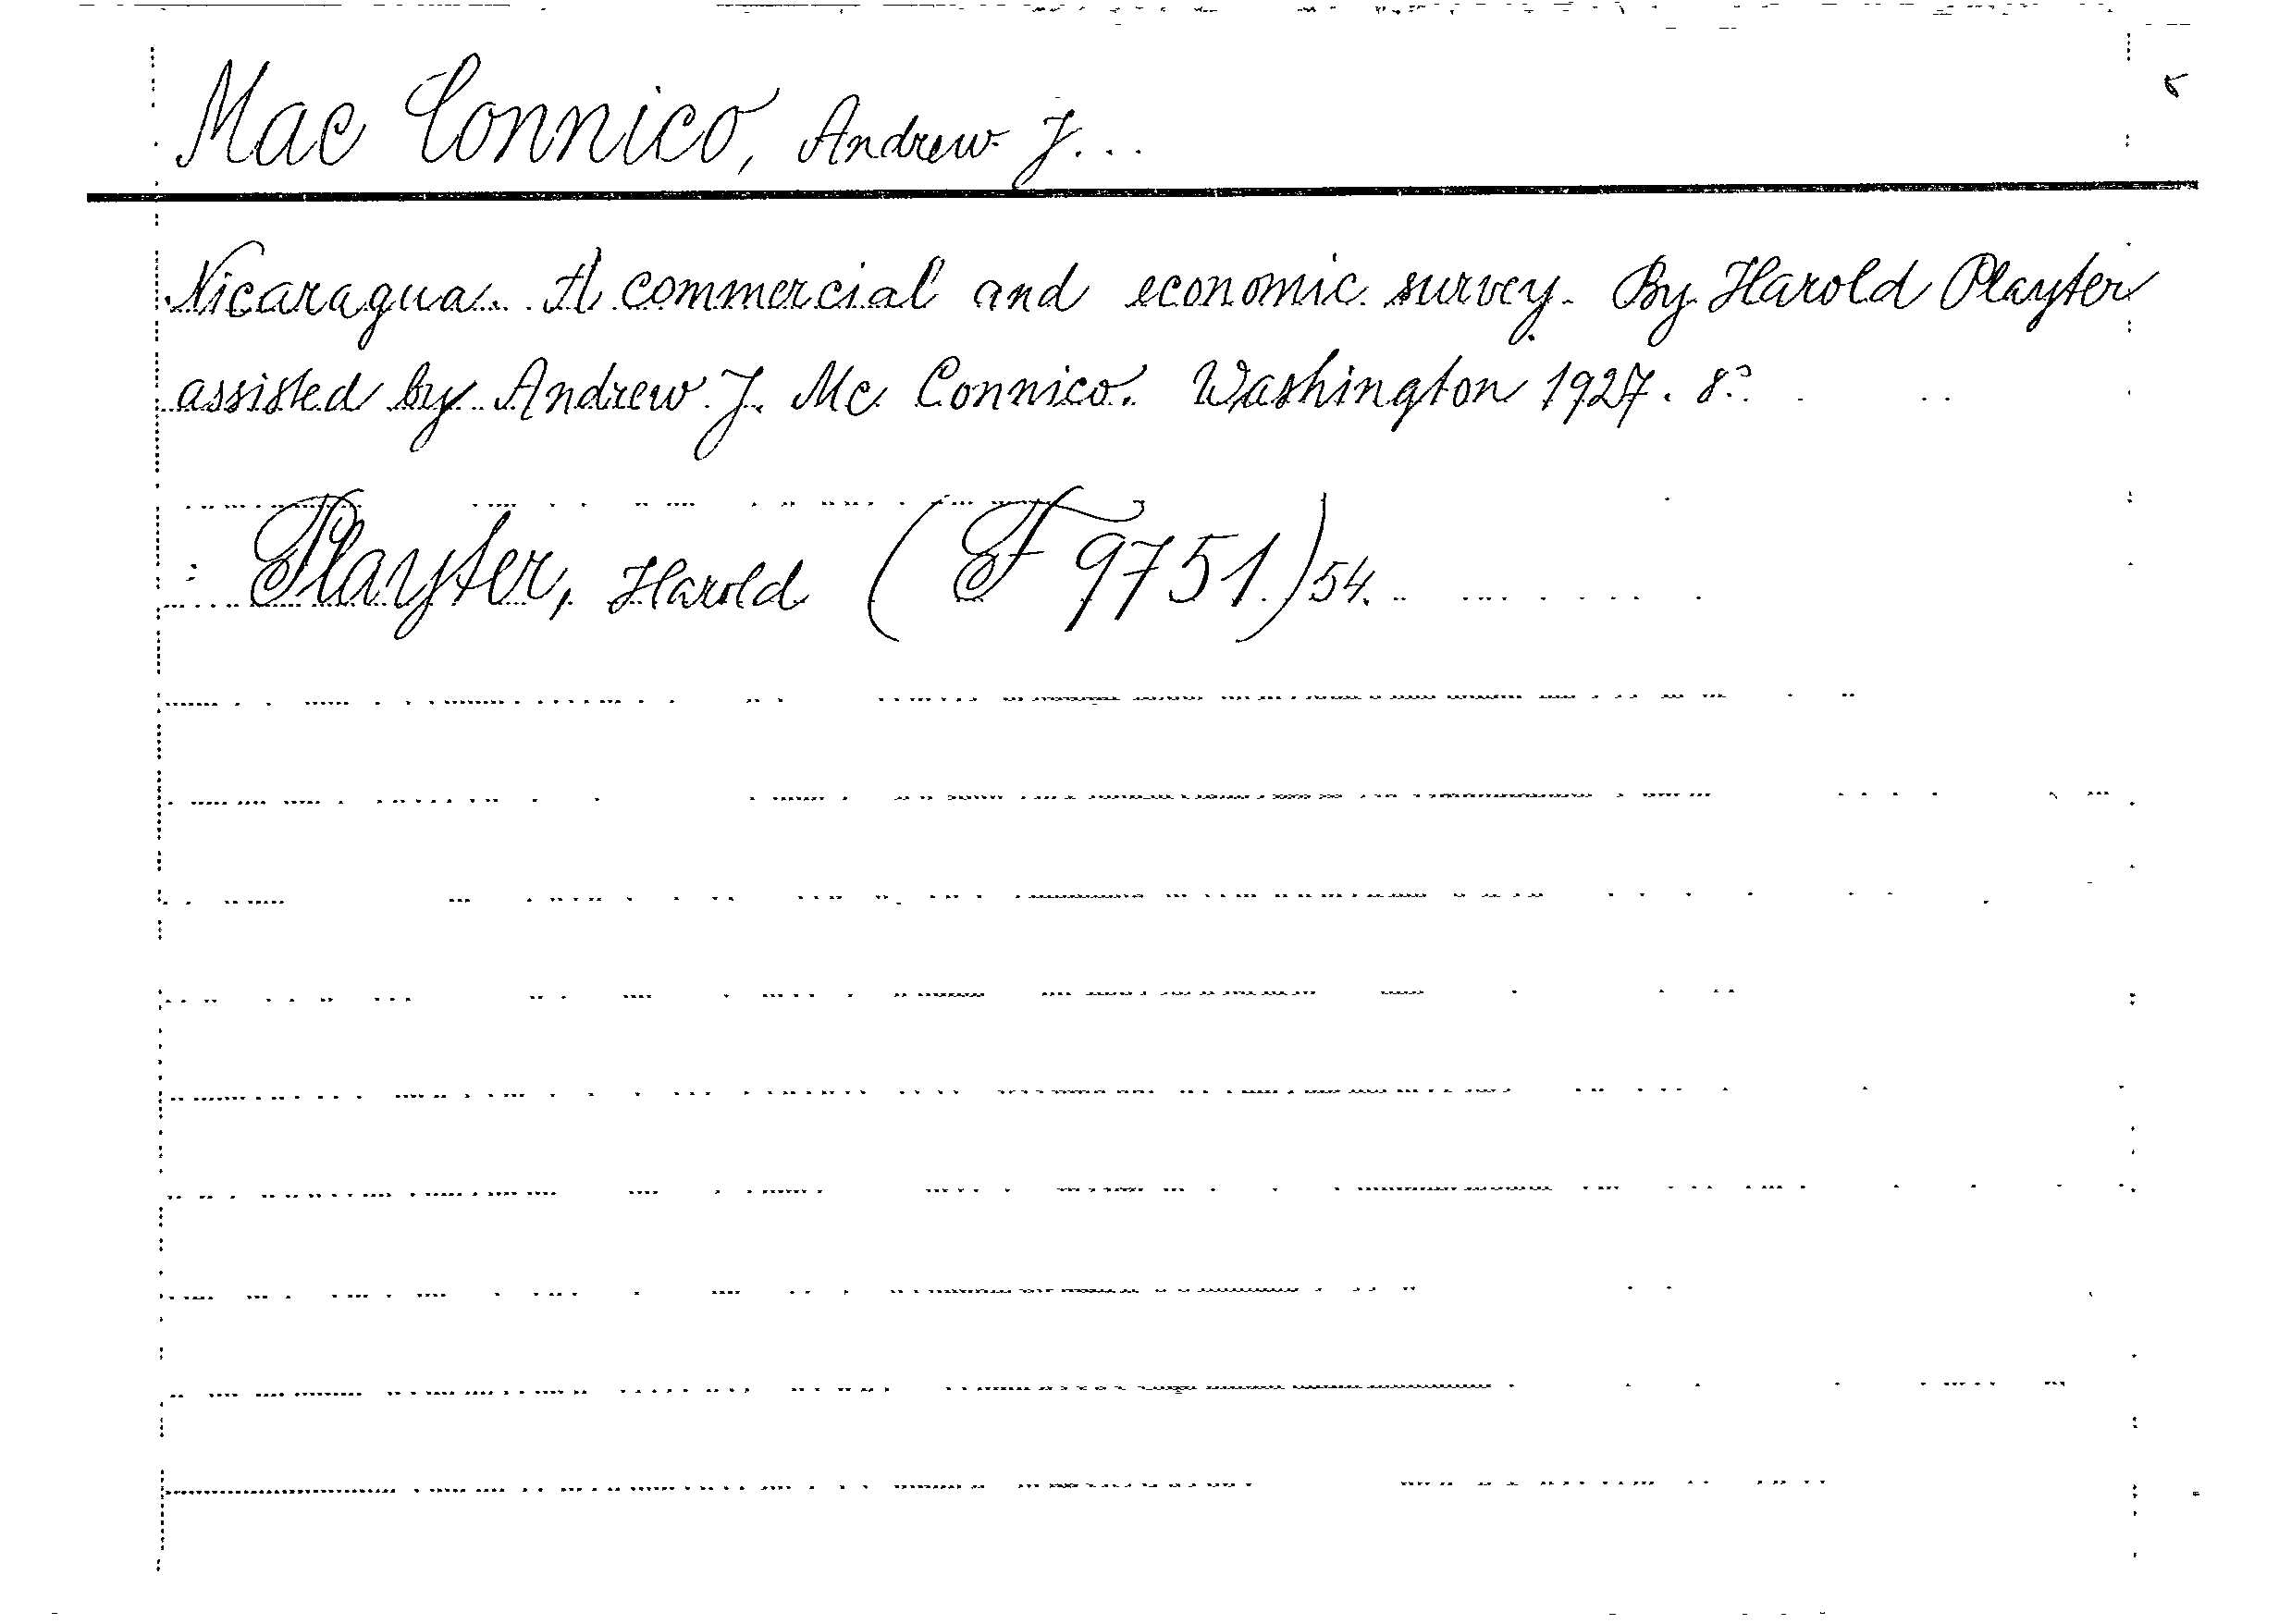 Mac Connico, Andrew J...
Nicaragua. A commercial and economic survey. By Harold Playter
assisted by Andrew J. Mc Connico. Washington 1927. 8°.
: Playter, Harold (F 9751.) 54.